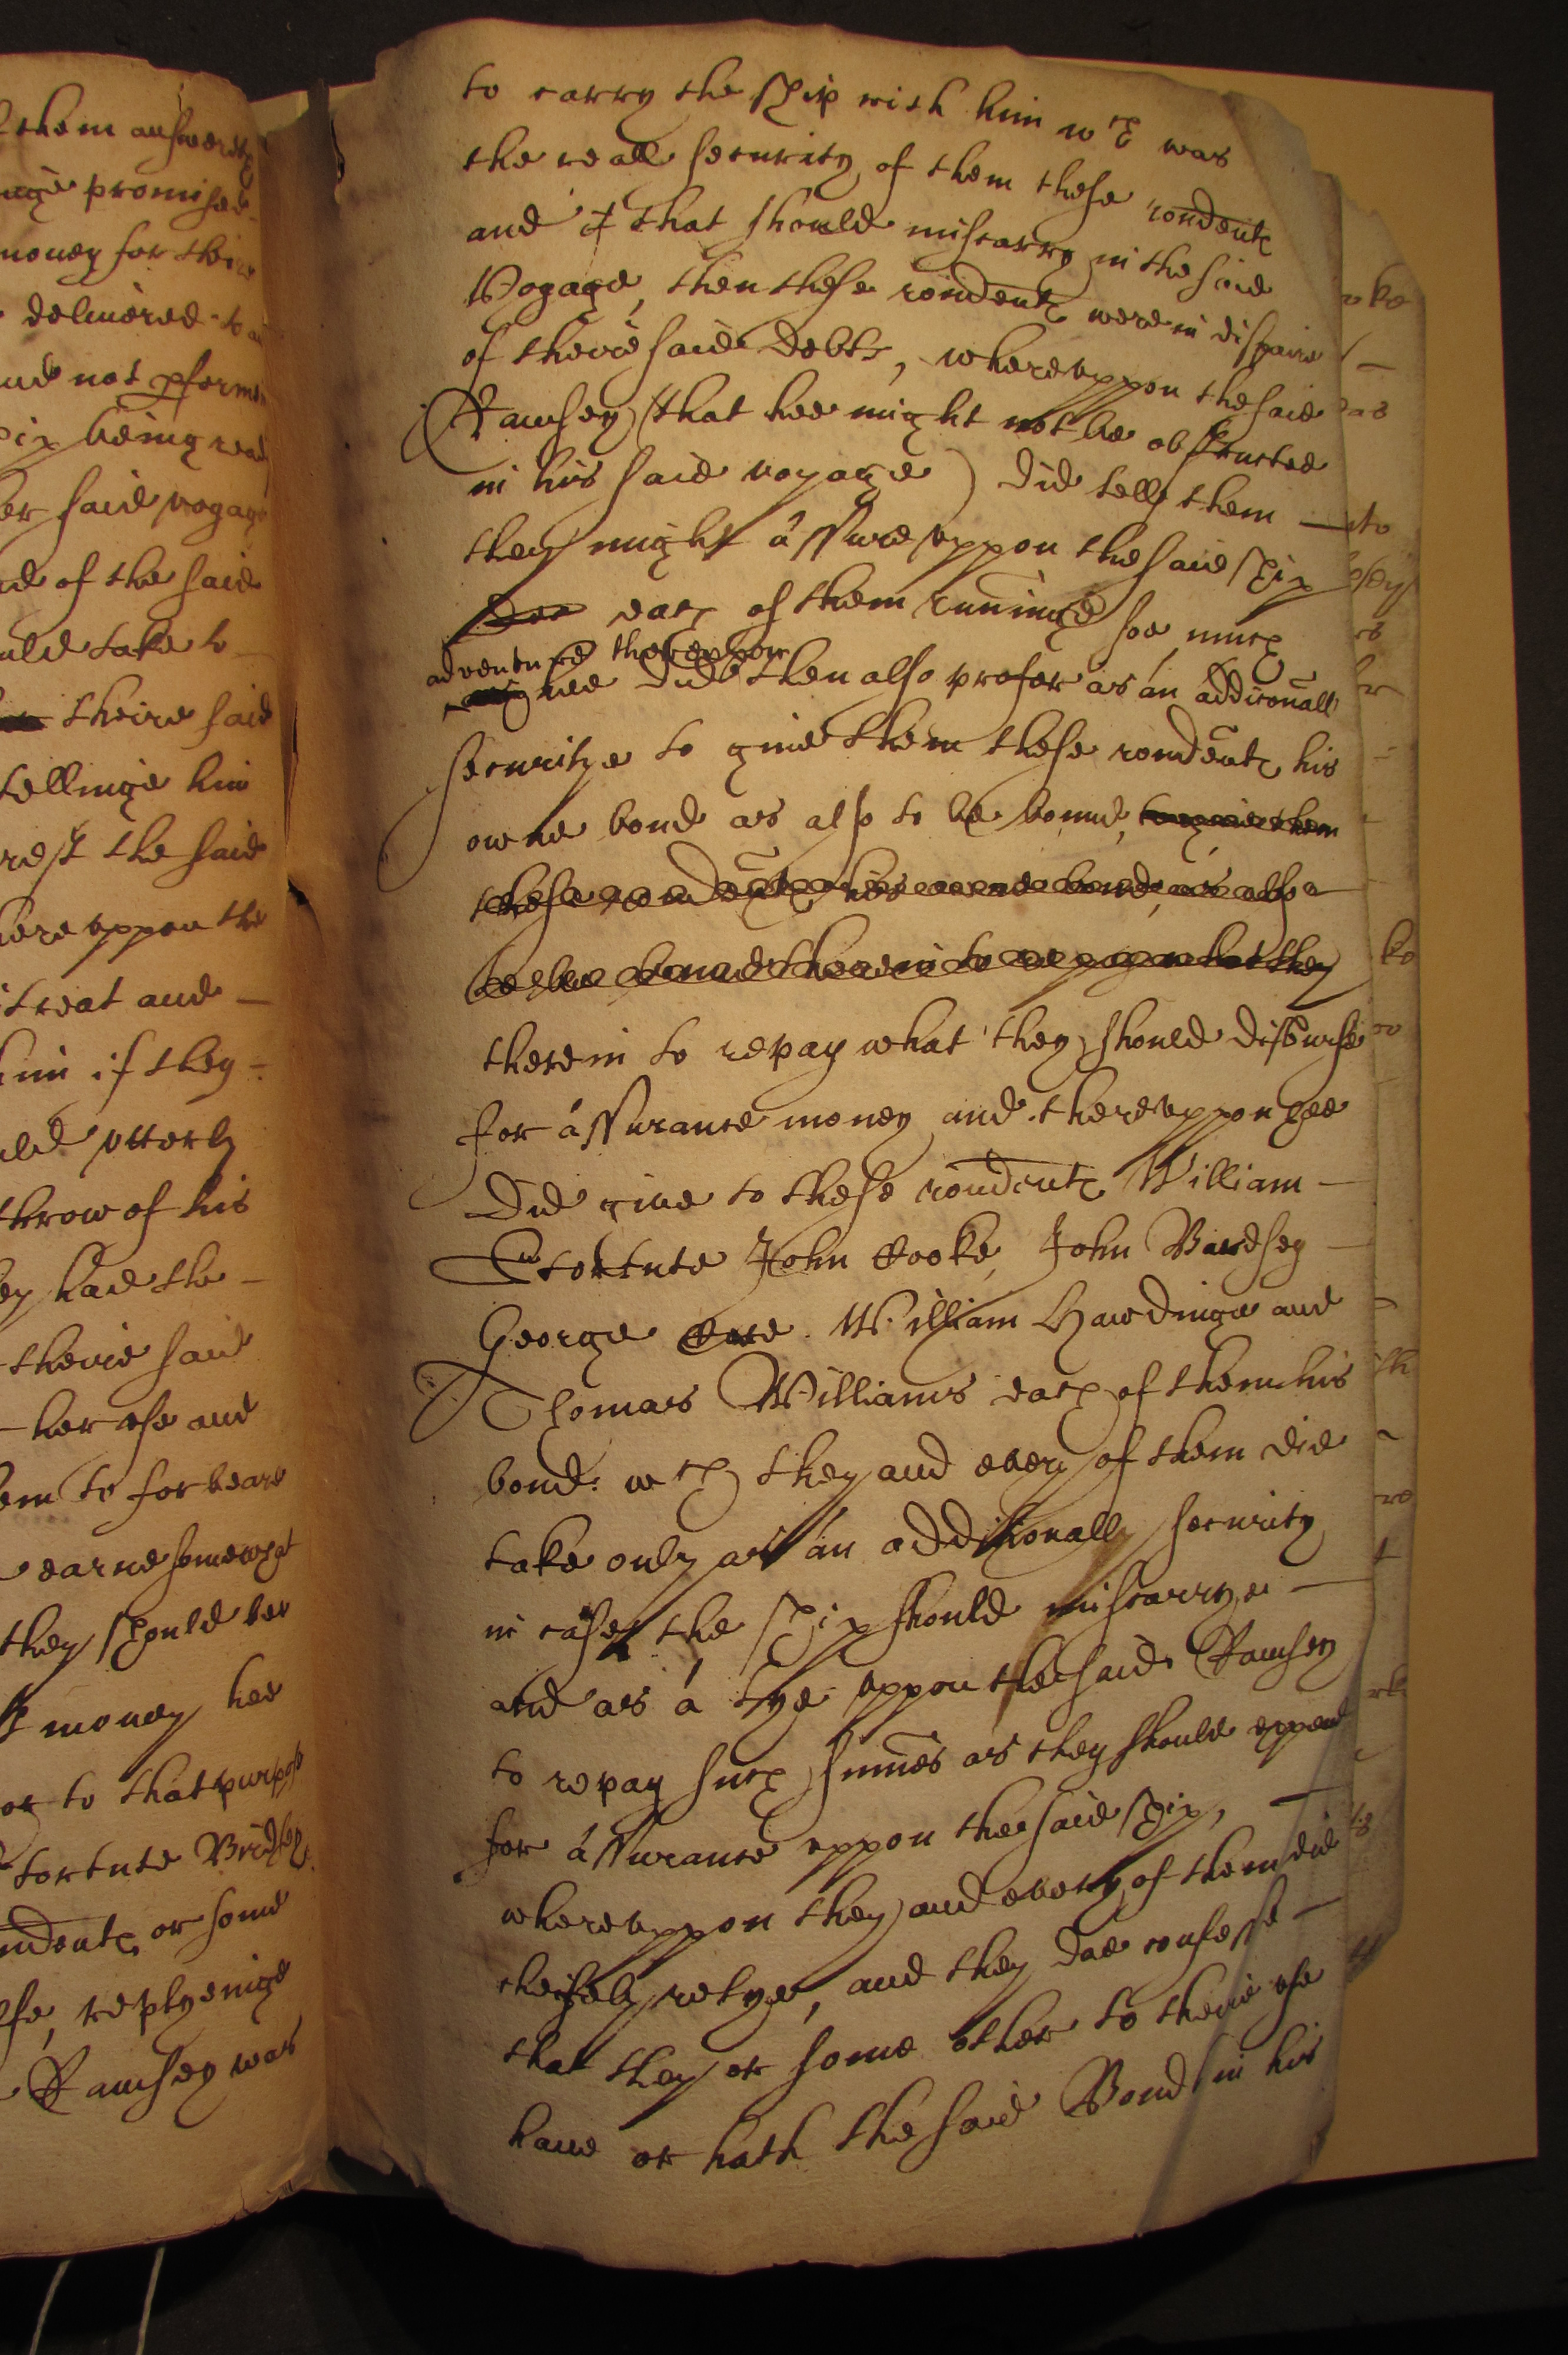 them answereth
promised
money for theire
delivered to
and not pforme
being read
her said voyage
of the said
take to
theire said
tellinge him
the said
whereuppon the
treat and
him if they
utterly
throw of his
they had the
theire said
her use and
them to forbeare
earne somewhat
they should bee
money hee
to that purpose
tortute
or some
replyeinge
Ramsey was
to carry the ship with him wch was
the reall security of them these rondents
and if that should miscarry in the said
Voyage, then these rondents were in dispaire
of theire said debts, whereuppon the said
Ramsey (that hee might not be obstructed
in his said voyage) did tell them
they might assure uppon the said ship
each of them runninge soe much
adventure thereuppon
hee did then also profer as an addiconall
securitye to give them these rondents his
owne bond as also to be bound to give them
these rondents his owne bond, as also
to bee bound therein to repay what they
therein to repay what they should disburse
for assurance money and thereuppon hee
did give to these rondents William
Tortute John Cooke, John Bawdsey
George William Hardinge and
Thomas Williams each of them his
bond: wch they and every of them did
take only as an additionall security
in case the ship should miscarrye
and as a tye uppon the said Ramsey
to repay such summes as they should expend
for assurance uppon the said ship,
whereuppon they and every of them did
cheifely relye, and they doe confesse
that they or some other to theire use
have or hath the said Bond in his